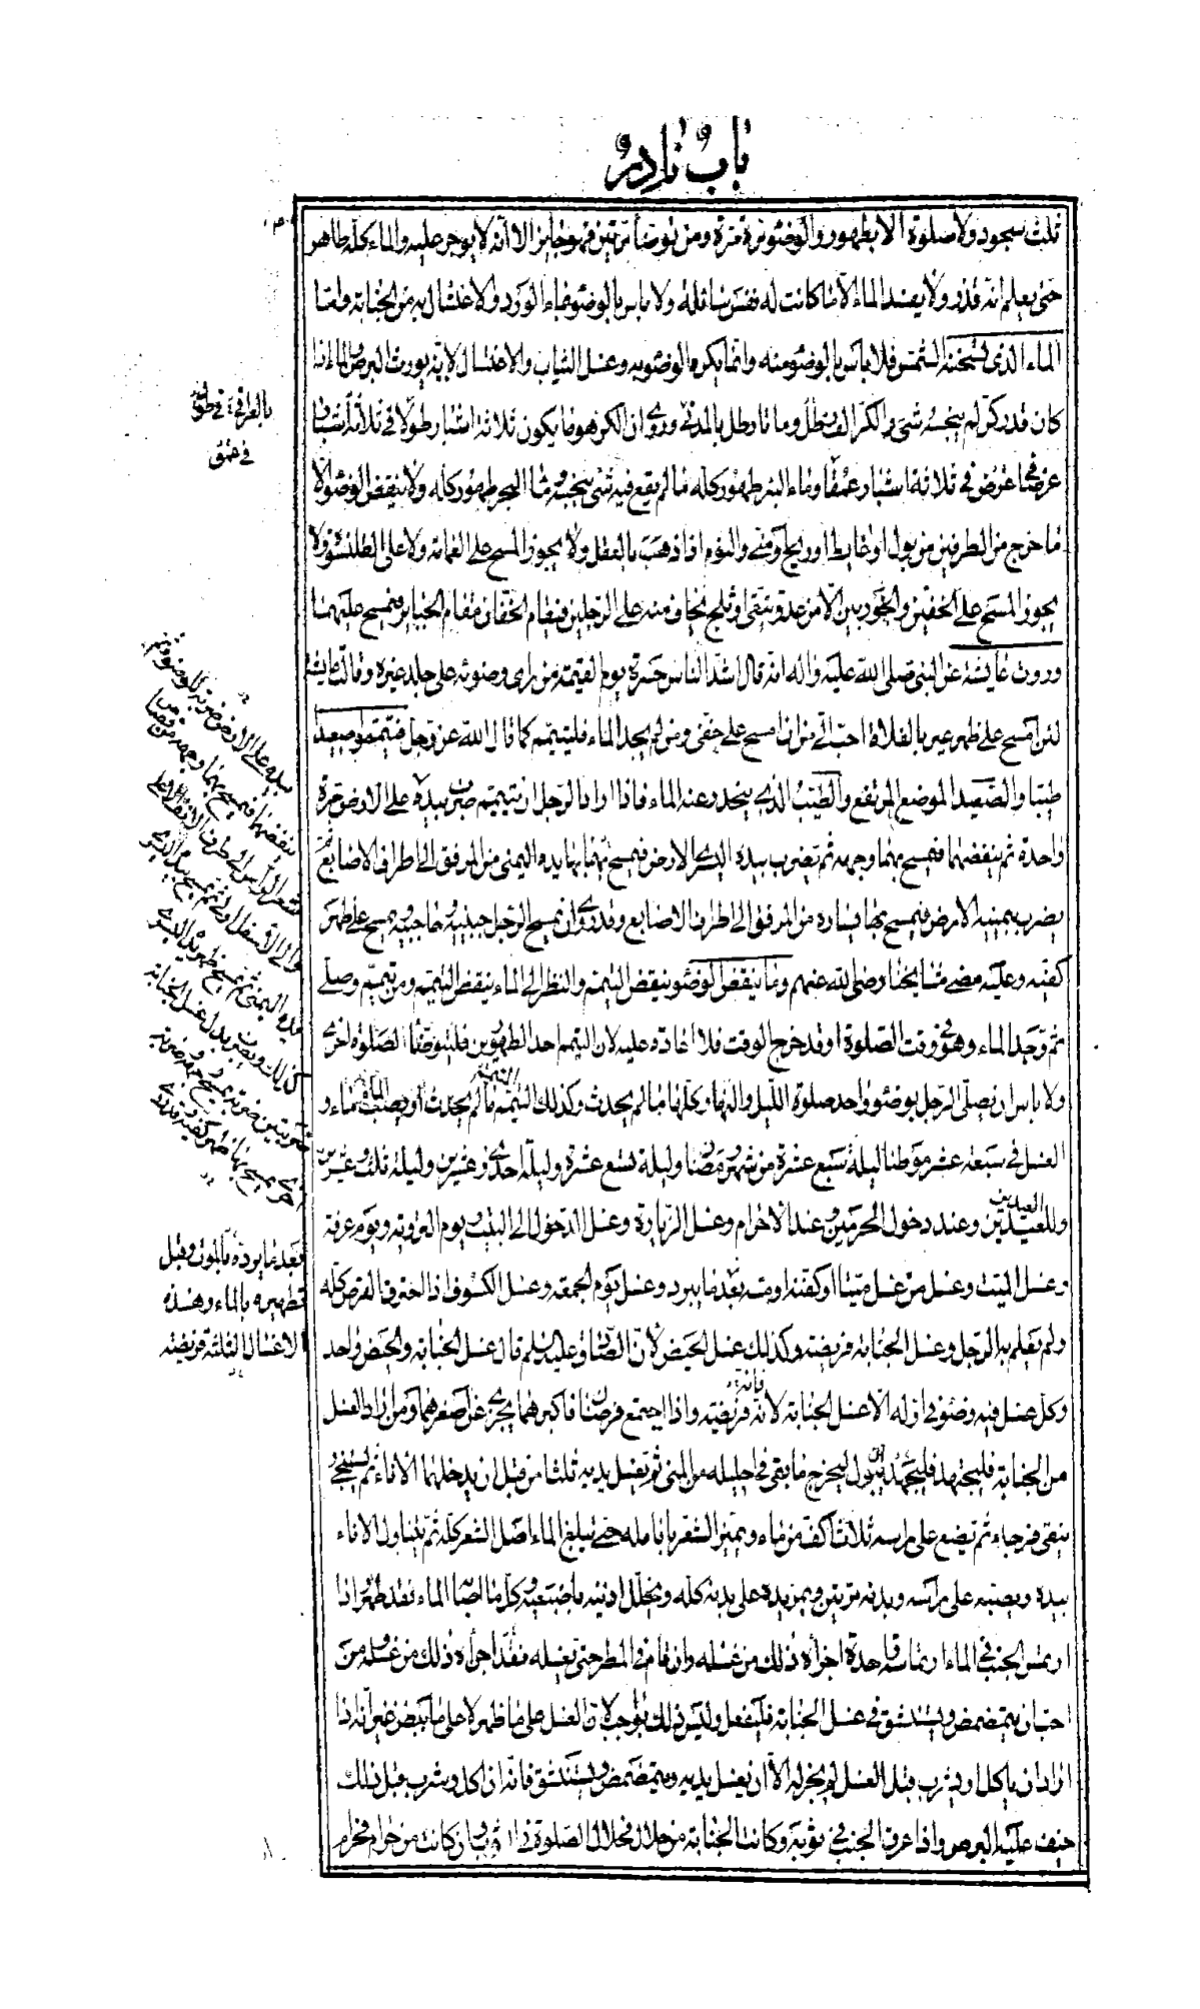 باب نادر
ثلث سجود ولا صلوة الا بطهور والوضوء مرة مرة ومن توضأ مرتين فهو جايز الا انه لا يوجر عليه والماء كله طاهر
حتى يعلم انه قذر ولا يفسد الماء الا ما كانت له نفس سائلة ولا باس بالوضوء بماء الورد والاغتسال به من الجنابة واما
الماء الذى تسخنه الشمس فلا باس بالوضوء منه وانما يكره الوضوء به وغسل الثياب والاغتسال لانه يورث البرص والماء اذا
كان قدر كر لم ينجسه شئ والكر الف رطل وماتا رطل بالمدنى وروى ان الكر هو ما يكون ثلاثة اشبار طولا فى ثلاثة اشبار
عرضا فى عرض فى ثلاثة اشبار عمقا وماء البئر طهور كله ما لم يقع فيه شئ ينجسه وماء البحر طهور كله ولا ينقض الوضوء الا
ما خرج من الطرفين من بول او غايط او ريح او منى والنوم اذا ذهب بالعقل ولا يجوز المسح على العمامة ولا على القلنسوة ولا
يجوز المسح على الخفين والجوربين الا من عدو يتقى او ثلج يخاف منه على الرجلين فيقام الخفان مقام الجباير فيمسح عليهما
وروت عايشة عن النبى صلى الله عليه واله انه قال اشد الناس حسرة يوم القيمة من راى وضوئه على جلد غيره وقالت عايشة
لئن امسح على ظهر عير بالفلاة احب الى من ان امسح على خفى ومن لم يجد الماء فليتيمم كما قال الله عز وجل فتيمموا صعيدا
طيبا والصعيد الموضع المرتفع والطيب الذى ينحدر عنه الماء فاذا اراد الرجل ان يتيمم ضرب بيده على الارض مرة
واحدة ثم ينفضهما فيمسح بهما وجهه ثم يضرب بيده اليسرى الارض فيمسح بها يده اليمنى من المرفق الى اطراف الاصابع ثم
يضرب بيمينه الارض فيمسح بها يساره من المرفق الى اطراف الاصابع وقد روى ان يمسح الرجل جبينيه وحاجبيه ويمسح على ظهر
كفيه وعليه مضى مشايخنا رضى الله عنهم وما ينقض الوضوء ينقض التيمم والنظر الى الماء ينقض التيمم ومن تيمم وصلى
ثم وجد الماء وهو فى وقت الصلوة او قد خرج الوقت فلا اعادة عليه لان التيمم احد الطهورين فليتوضأ لصلوة اخرى
ولا باس ان يصلى الرجل بوضوء واحد صلوة الليل والنهار كلها ما لم يحدث وكذلك التيمم ما لم يحدث او يصيب ماء و
الغسل فى سبعة عشر موطنا ليلة سبع عشرة من شهر رمضان وليلة تسع عشرة وليلة احدى وعشرين وليلة ثلث وعشرين
وللعيدين وعند دخول الحرمين وعند الاحرام وغسل الزيارة وغسل الدخول الى البيت ويوم التروية ويوم عرفة
وغسل الميت وغسل من غسل ميتا او كفنه او مسه بعد ما يبرد وغسل يوم الجمعة وغسل الكسوف اذا احترق القرص كله
ولم يعلم به الرجل وغسل الجنابة فريضة وكذلك غسل الحيض لان الصادق عليه السلم قال غسل الجنابة والحيض واحد
وكل غسل فيه وضوء فى اوله الا غسل الجنابة لانه فريضة واذا اجتمع فرضان فاكبرهما يجزى عن اصغرهما ومن اراد الغسل
من الجنابة فليجتهد ان يبول ليخرج ما بقى فى احليله من المنى ثم يغسل يديه ثلثا من قبل ان يدخلهما الاناء ثم يستنجى و
ينقى فرجه ثم يضع على راسه ثلاث اكف من ماء ويميز الشعر بانامله حتى يبلغ الماء اصل الشعر كله ثم يتناول الاناء
بيده ويصبه على راسه وبدنه مرتين ويمر يده على بدنه كله ويخلل اذنيه باصبعيه وكل ما اصابه الماء فقد طهر واذا
ارتمس الجنب فى الماء ارتماسة واحدة اجزأه ذلك من غسله وان قام فى المطر حتى يغسله فقد اجزأه ذلك من غسله ومن
احب ان يتمضمض ويستنشق فى غسل الجنابة فليفعل وليس ذلك بواجب لان الغسل على ما ظهر لا على ما بطن غير انه اذا
اراد ان ياكل او يشرب قبل الغسل لم يجز له الا ان يغسل يديه ويتمضمض ويستنشق فانه ان اكل وشرب قبل ذلك
خيف عليه البرص واذا عرق الجنب فى ثوبه وكانت الجنابة من حلال فحلال الصلوة فى الثوب وان كانت من حرام فحرام
فى عمق
بعد ما يرده بالموت وقبل
تطهيره بالماء وهذه
الاغسال الثلثة فريضة